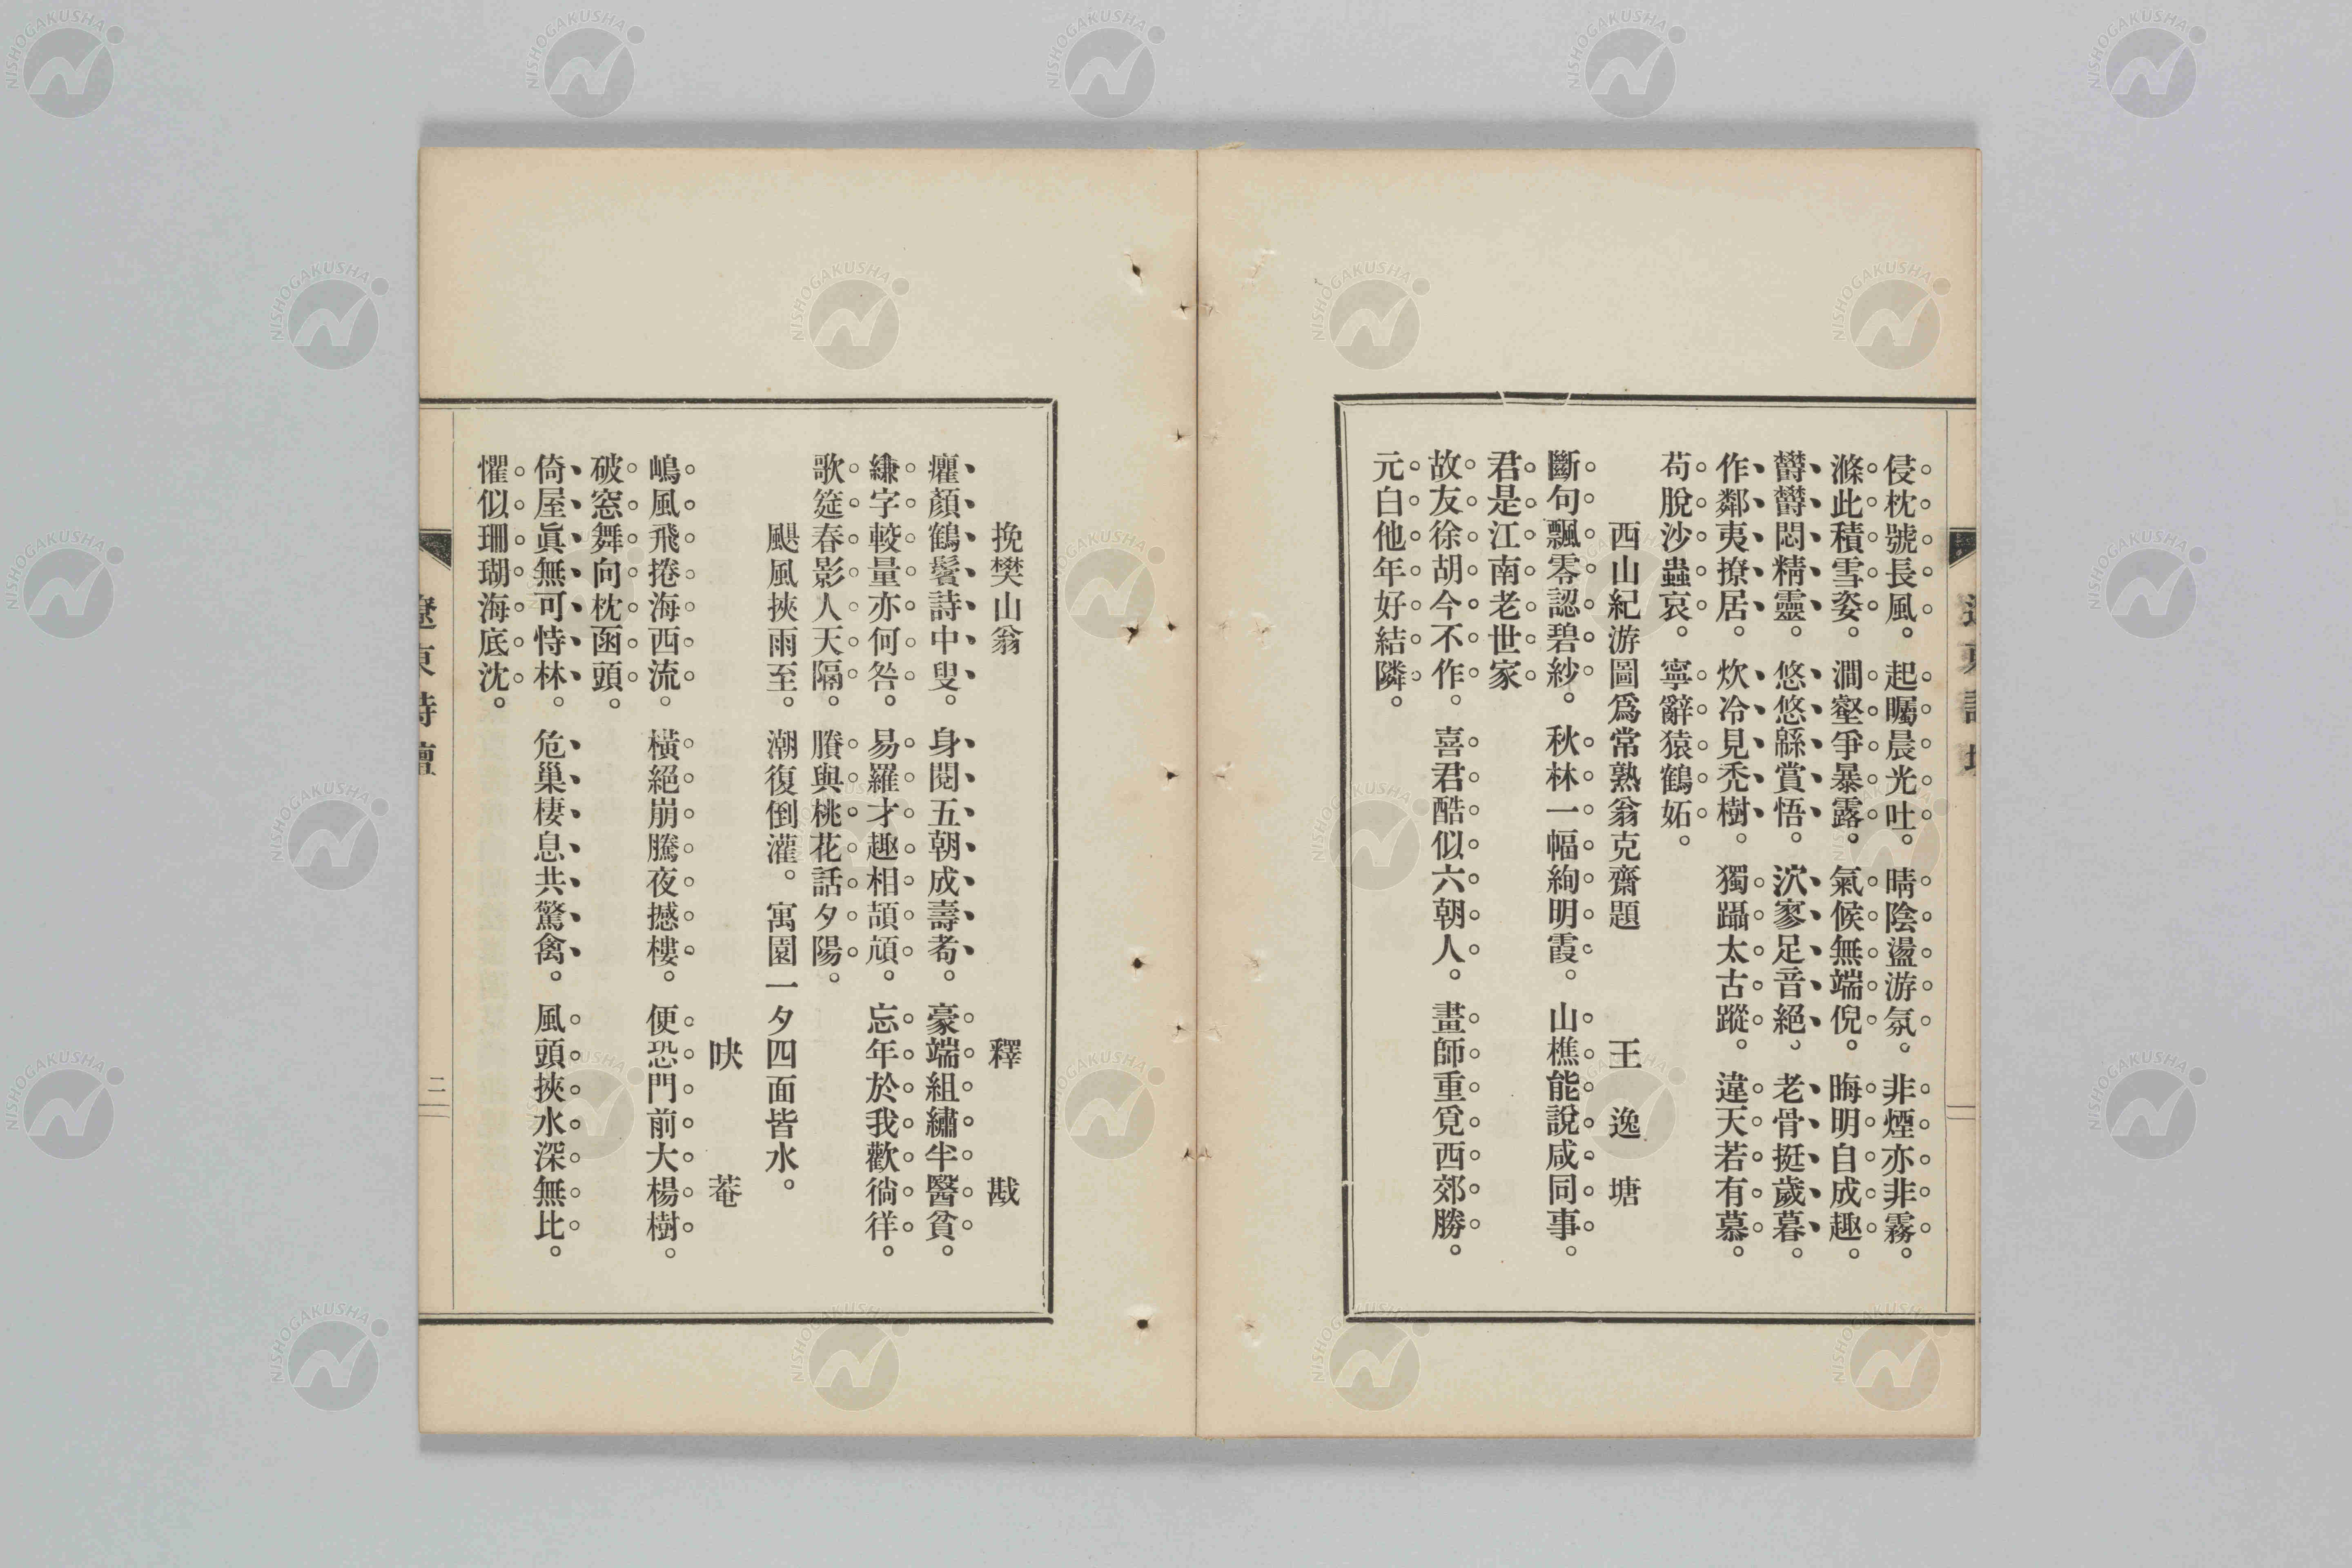 侵枕號長風。起矚晨光吐。晴陰盪游氛。非煙亦非霧。
滌此積雪姿。澗壑爭暴露。氣候無端倪。晦明自成趣。
欝欝悶精靈。悠悠緜賞悟。泬寥足音絕。老骨挺歲暮。
作鄰夷獠居。炊冷見禿樹。獨躡太古蹤。違天若有慕。
苟脫沙蟲哀。寧辭猿鶴妬。
西山紀游圖爲常熟翁克齋題 王逸塘
斷句飄零認碧紗。秋林一幅絢明霞。山樵能說咸同事。
君是江南老世家
故友徐胡今不作。喜君酷似六朝人。畫師重覓西郊勝。
元白他年好結隣。
挽樊山翁 釋戡
癯顏鶴鬢詩中叟。身閱五朝成壽耉。豪端組繡半醫貧。
縑字較量亦何咎。易羅才趣相頡頏。忘年於我歡徜徉。
歌筵春影人天隔。賸與桃花話夕陽。
颶風挾雨至。潮復倒灌。寓園一夕四面皆水。
吷菴
嶋風飛捲海西流。橫絕崩騰夜撼樓。便恐門前大楊樹。
破窓舞向枕函頭。
倚屋眞無可恃林。危巢棲息共驚禽。風頭挾水深無比。
懼似珊瑚海底沈。
遼東詩壇
二
NISHOGAKUSHA